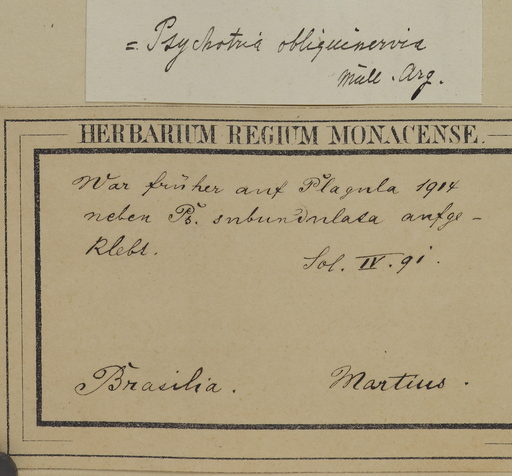 = Psychotria obliquinervia
Müll. Arg.
HERBARIUM REGIUM MONACENSE.
War früher auf Plagula 1914
neben Ps. subundulata aufge-
klebt.
Sol. IV. 91.
Brasilia. Martius.